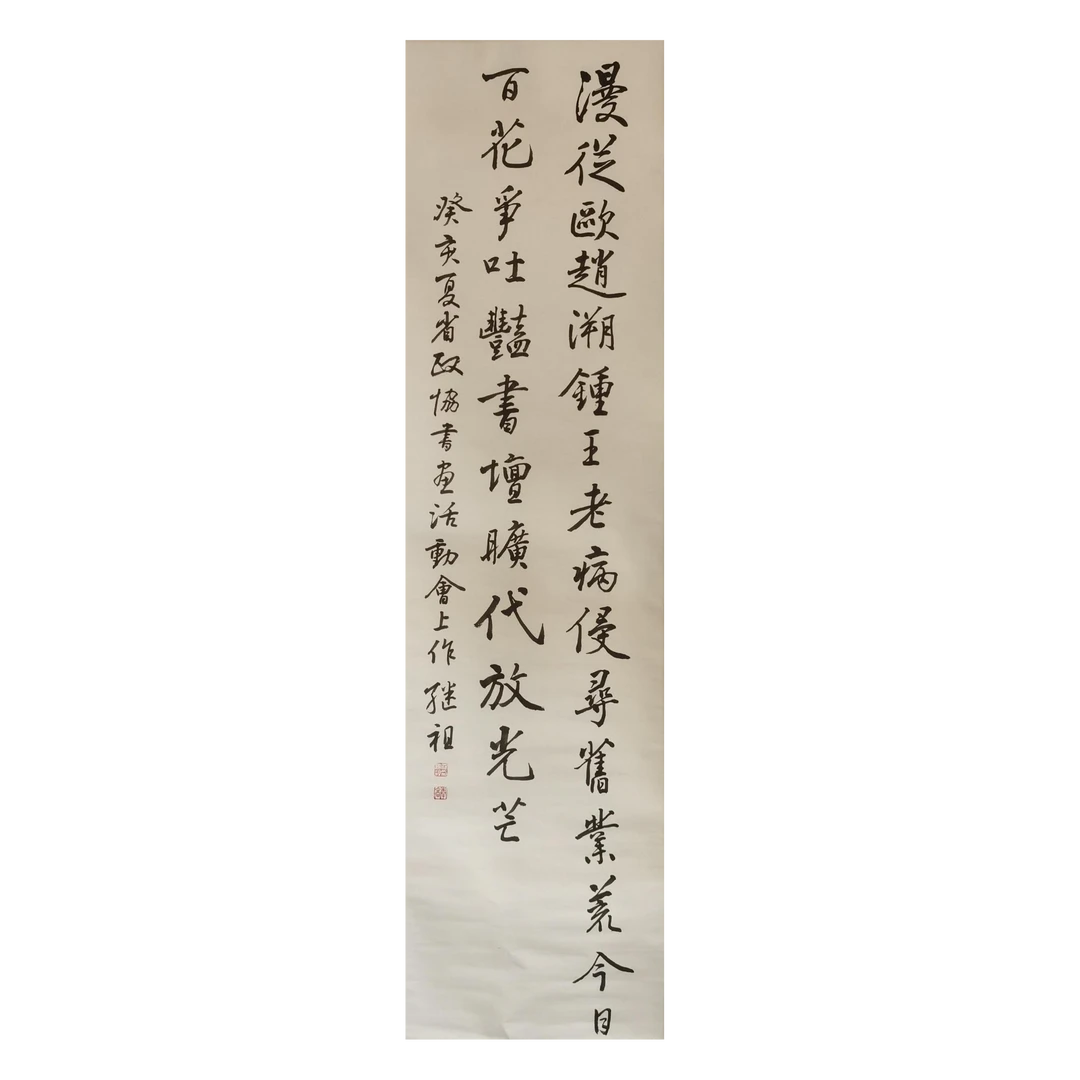 漫從歐趙溯鍾王老病侵尋舊業荒今日
百花爭吐豔書壇曠代放光芒
癸亥夏省政協書画活動會上作 继祖